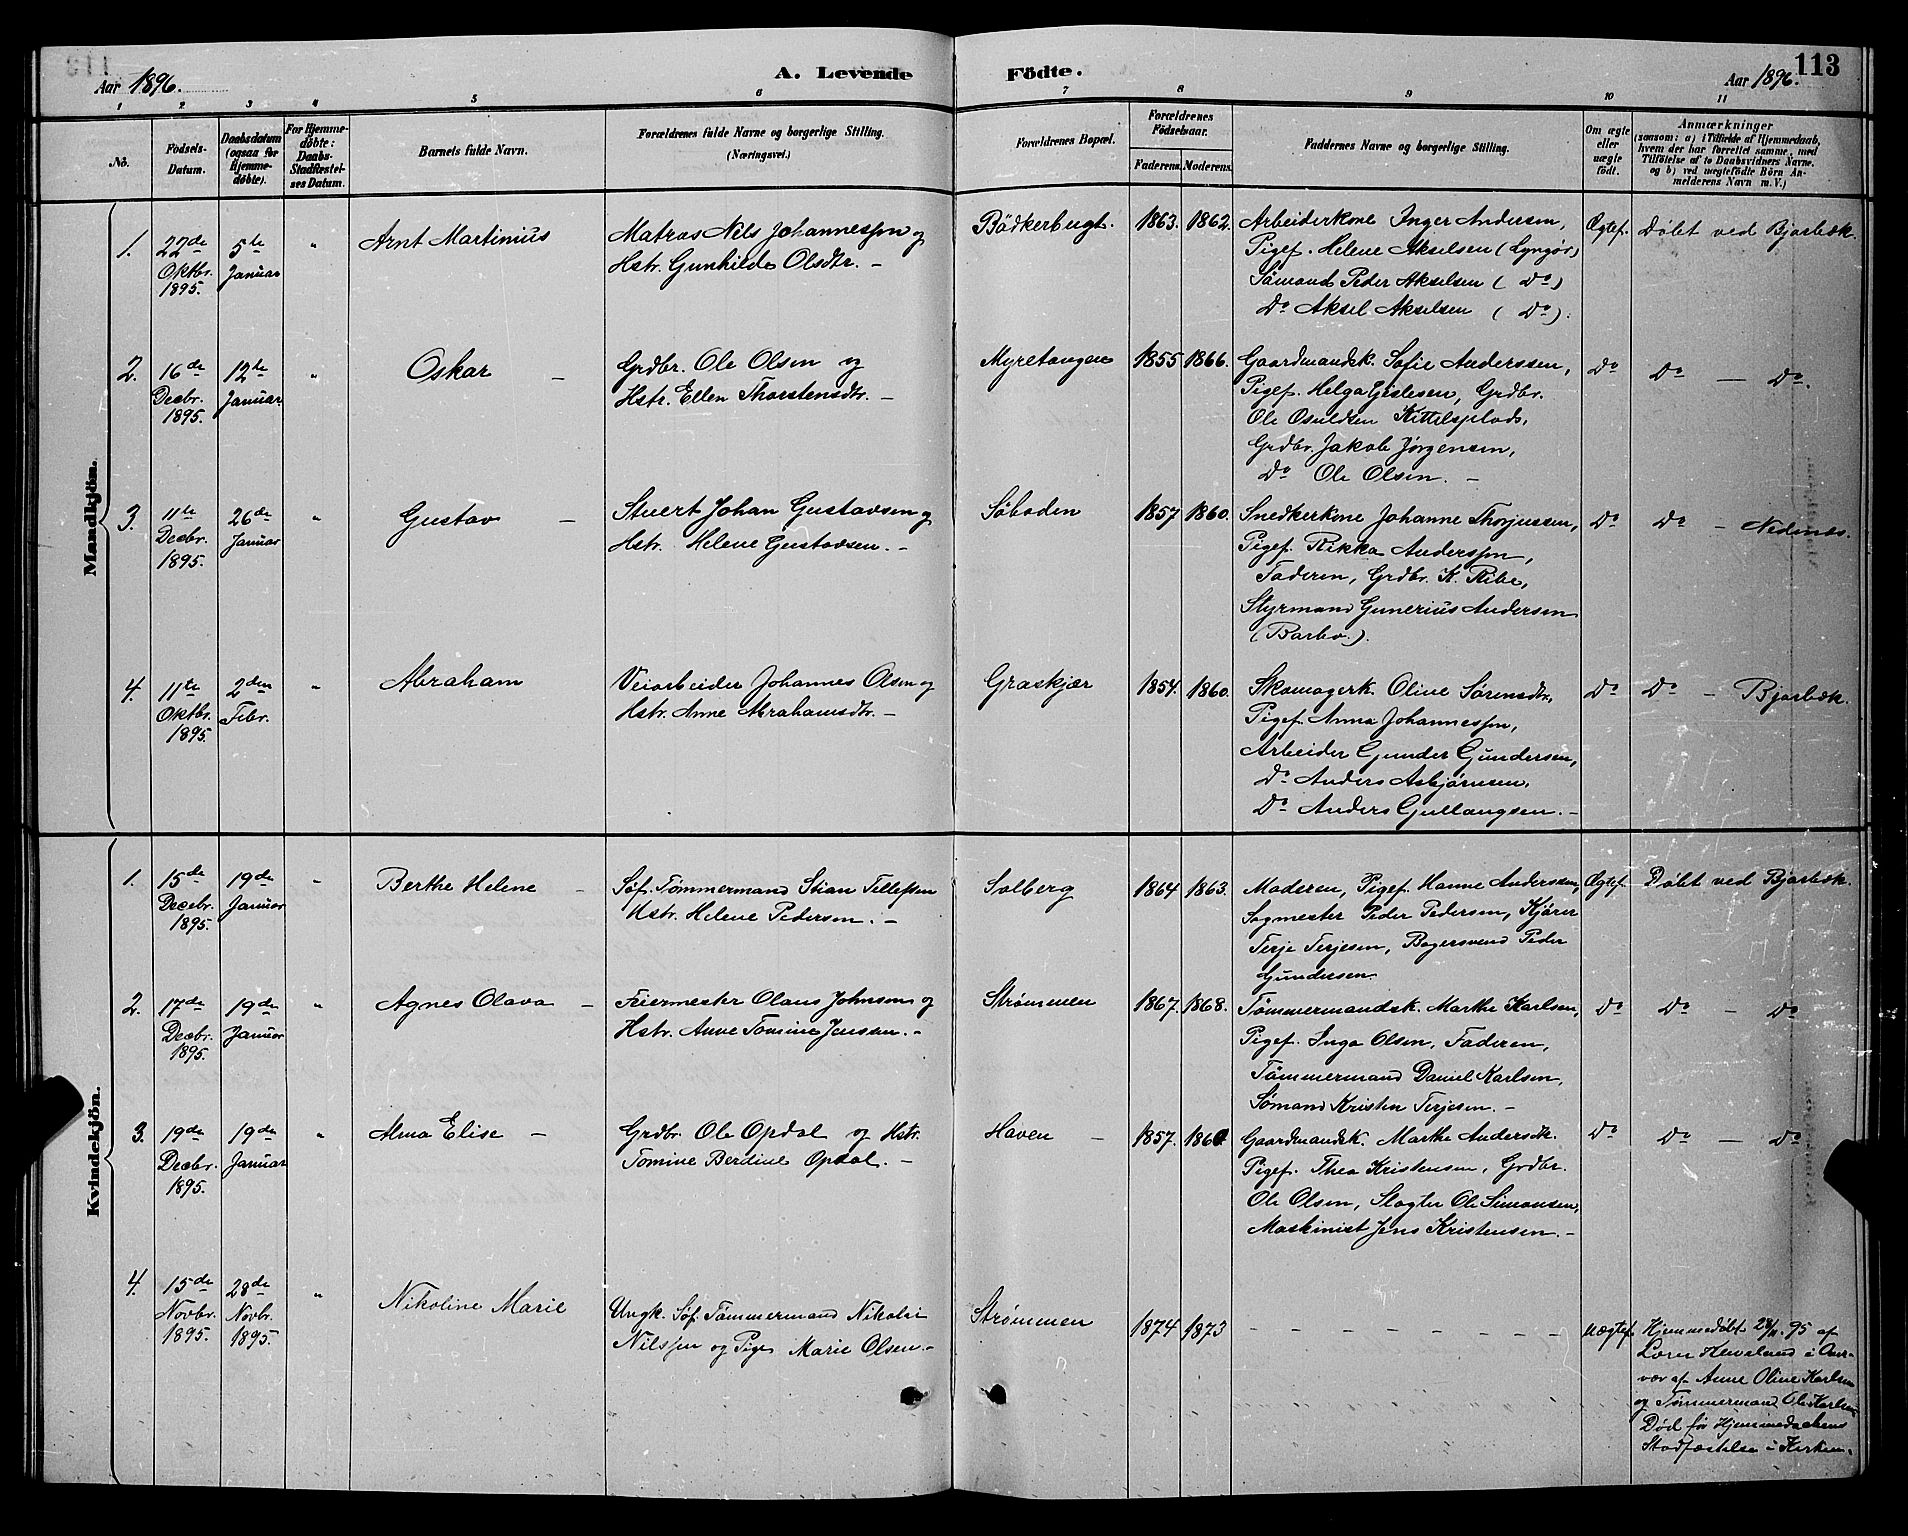 Aar 1896.
A. Levende Födte.
Aar 1896.
113
1 2 3 4 5 6 7 8 9 10 11
No.
Fodsels-
Datum.
Daabsdatum
(ogsaa for
Hjemme-
döbte).
For Hjemme-
döbte:
Daabs-
Stadfæstel-
ses Datum.
Barnets fulde Navn.
Forældrenes fulde Navne og borgerlige Stilling.
(Næringsvei.)
Forældrenes Bopæl.
Forældrenes
Födselsaar.
Faderens. Moderens.
Faddernes Navne og borgerlige Stilling.
Om ægte
eller
uægte
födt.
Anmærkninger
(saasom: a) i Tilfælde af Hjemmedaab,
hvem der har forrettet samme, med
Tilföielse af to Daabsvidners Navne,
og b) ved uægtefödte Börn An-
melderens Navn m. V.)
Mandkjön.
1.
22de
Oktbr.
1895.
5te
Januar
"
Arnt Martinius
Matros Nils Johannessen og
Hstr. Gunhilde Olsdtr. -
Bödkerbugt.
1863. 1862.
Arbeiderkone Inger Andersen,
Pigef. Helene Akselsen (Lyngør)
Sömand Peder Akselsen ( Do)
Do Aksel Akselsen ( Do).
Ægtef.
Döbt ved Bjarbæk.
2.
16de
Decbr.
1895.
12te
Januar
"
Oskar -
Grdbr. Ole Olsen og
Hstr. Ellen Thorstensdtr. -
Myretangen
1855 1866.
Gaardmandsk. Sofie Anderssen,
Pigef. Helga Gislesen, Grdbr.
Ole Osuldsen Kittelsplads,
Grdbr. Jakob Jørgensen,
Do Ole Olsen. -
Do
Do - Do.
3.
11te
Decbr.
1895.
26de
Januar
"
Gustav -
Stuert Johan Gustavsen og
Hstr. Helene Gustavsen. -
Söboden
1857 1860.
Snedkerkone Johanne Thorjussen,
Pigef. Rikka Anderssen,
Faderen, Grdbr. K. Ribe,
Styrmand Gunerius Andersen
(Barbo.).
Do
Do - Nedenes.
4.
11te
Oktbr.
1895.
2den
Febr.
"
Abraham
Veiarbeider Johannes Olsen og
Hstr. Anne Abrahamsdtr. -
Graskjær
1854. 1860.
Skomagerk. Oline Sørensdtr,
Pigef. Anna Johannessen,
Arbeider Gunder Gundersen,
Do Anders Asbjørnsen,
Do Anders Gullangsen. -
Do
Do - Bjarbæk.
Kvindekjön.
1.
15de
Decbr.
1895.
19de
Januar
"
Berthe Helene -
Söf. Tømmermand Stian Tellefsen
Hstr. Helene Pedersen. -
Solberg
1864 1863.
Moderen, Pigef. Hanne Anderssen,
Sagmester Peder Pedersen, Kjörer
Terje Terjesen, Bagersvend Peder
Gundersen
Ægtef.
Döbt ved Bjarbæk.
2.
17de
Decbr.
1895.
19de
Januar
"
Agnes Olava -
Feiermester Olaus Johnsen og
Hstr. Anne Tomine Jenssen. -
Strømmen
1867. 1868.
Tömmermandsk. Marthe Karlsen,
Pigef. Inga Olsen, Faderen,
Tömmermand Daniel Karlsen,
Sömand Kristen Terjesen. -
Do
Do - Do
3.
19de
Decbr.
1895.
19de
Januar
"
Alma Elise -
Grdbr. Ole Opdal og Hstr.
Tomine Berdine Opdal. -
Haven -
1857.
Gaardmandsk. Marthe Andersdtr.
Pigef. Thea Kristensen, Grdbr.
Ole Olsen, Slagter Ole Simonsen,
Maskinist Jens Kristensen. -
Do
Do - Do
4.
15de
Novbr.
1895.
28de
Novbr.
1895.
"
Nikoline Marie
Ungk. Söf. Tømmermand Nikolai
Nilssen og Pige Marie Olsen. -
Strømmen
1874 1873
- - - - - - - -
Uægtef.
Hjemmedöbt 28/11 95 af
Lærer Hevelund i Over-
vær af Anne Oline Karlsen
og Tømmermand Ole Karlsen
Död før Hjemmedaabens
Stadfæstelse i Kirken.